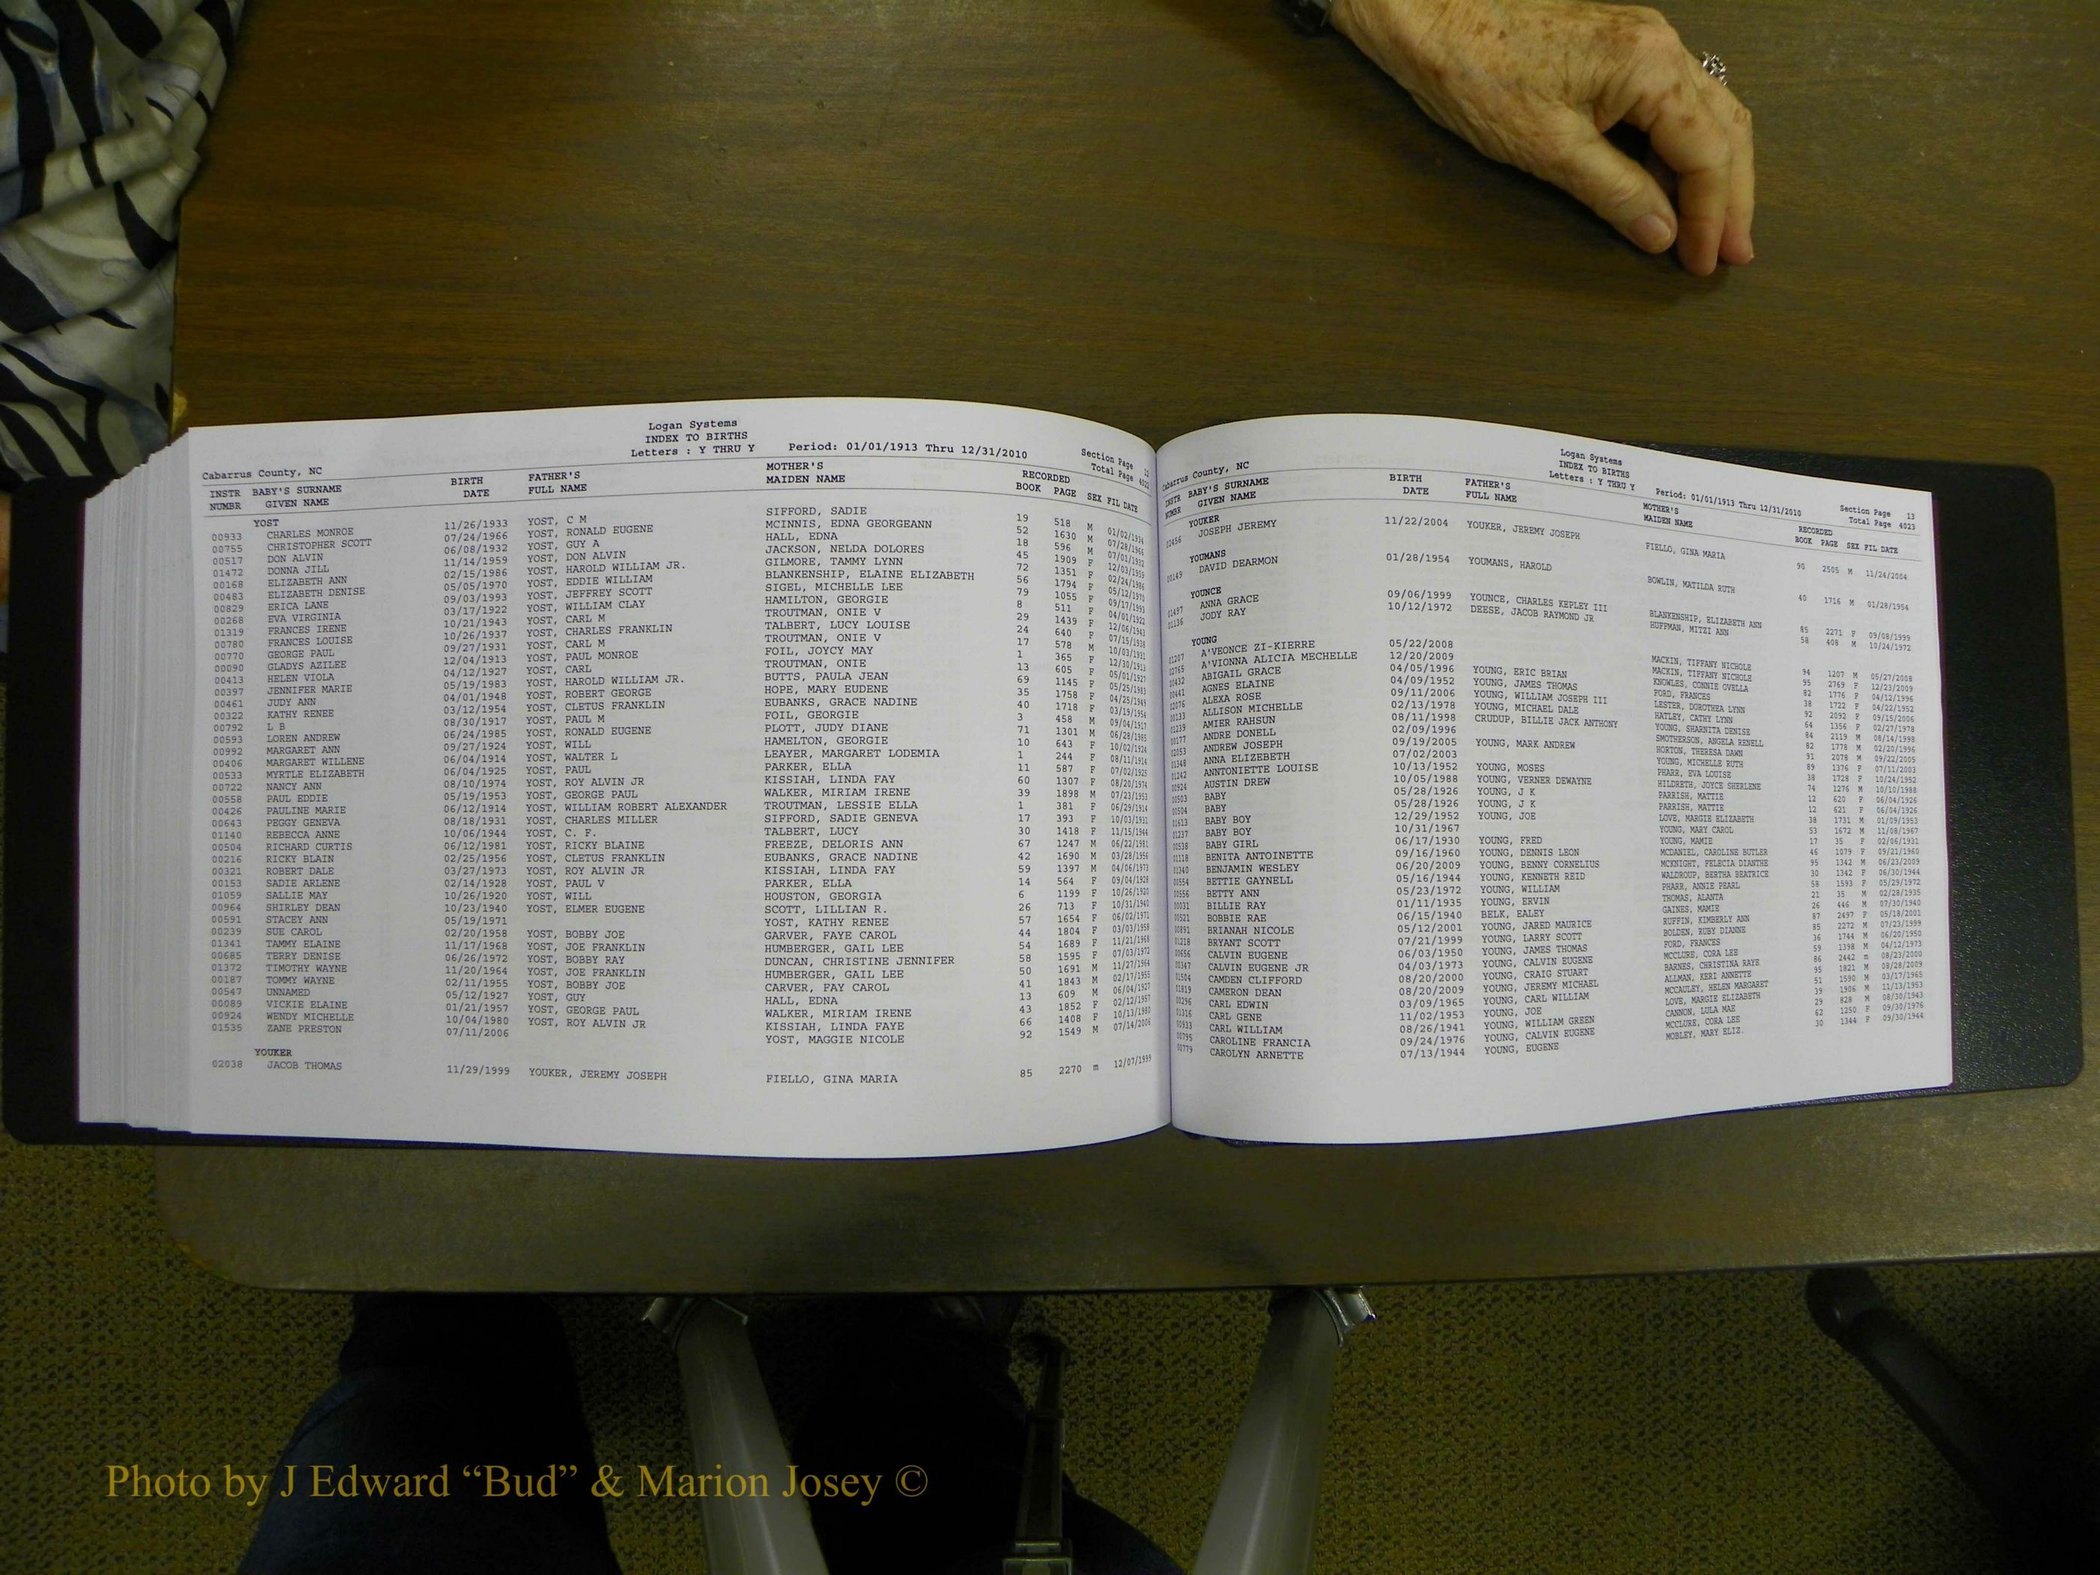 Logan Systems
INDEX TO BIRTHS
Letters : Y THRU Y Period: 01/01/1913 Thru 12/31/2010
Cabarrus County, NC Section Page
Total Page 4022
INSTR BABY'S SURNAME BIRTH FATHER'S MOTHER'S RECORDED
NUMBR GIVEN NAME DATE FULL NAME MAIDEN NAME BOOK PAGE SEX FIL DATE
YOST
00933 CHARLES MONROE 11/26/1933 YOST, C M SIFFORD, SADIE 19 518 M 01/02/1934
00755 CHRISTOPHER SCOTT 07/24/1966 YOST, RONALD EUGENE MCINNIS, EDNA GEORGEANN 52 1630 M 07/28/1966
00517 DON ALVIN 06/08/1932 YOST, GUY A HALL, EDNA 18 596 M 07/01/1932
01472 DONNA JILL 11/14/1959 YOST, DON ALVIN JACKSON, NELDA DOLORES 45 1909 F 12/03/1959
00168 ELIZABETH ANN 02/15/1986 YOST, HAROLD WILLIAM JR. GILMORE, TAMMY LYNN 72 1351 F 02/24/1986
00483 ELIZABETH DENISE 05/05/1970 YOST, EDDIE WILLIAM BLANKENSHIP, ELAINE ELIZABETH 56 1794 F 05/12/1970
00829 ERICA LANE 09/03/1993 YOST, JEFFREY SCOTT SIGEL, MICHELLE LEE 79 1055 F 09/17/1993
00268 EVA VIRGINIA 03/17/1922 YOST, WILLIAM CLAY HAMILTON, GEORGIE 8 511 F 04/01/1922
01319 FRANCES IRENE 10/21/1943 YOST, CARL M TROUTMAN, ONIE V 29 1439 F 12/06/1943
00780 FRANCES LOUISE 10/26/1937 YOST, CHARLES FRANKLIN TALBERT, LUCY LOUISE 24 640 F 07/15/1938
00770 GEORGE PAUL 09/27/1931 YOST, CARL M TROUTMAN, ONIE V 17 578 M 10/03/1931
00090 GLADYS AZILEE 12/04/1913 YOST, PAUL MONROE FOIL, JOYCY MAY 1 365 F 12/30/1913
00413 HELEN VIOLA 04/12/1927 YOST, CARL TROUTMAN, ONIE 13 605 F 05/01/1927
00397 JENNIFER MARIE 05/19/1983 YOST, HAROLD WILLIAM JR. BUTTS, PAULA JEAN 69 1145 F 05/25/1983
00461 JUDY ANN 04/01/1948 YOST, ROBERT GEORGE HOPE, MARY EUDENE 35 1758 F 04/25/1949
00322 KATHY RENEE 03/12/1954 YOST, CLETUS FRANKLIN EUBANKS, GRACE NADINE 40 1718 F 03/19/1954
00792 L B 08/30/1917 YOST, PAUL M FOIL, GEORGIE 3 458 M 09/04/1917
00593 LOREN ANDREW 06/24/1985 YOST, RONALD EUGENE PLOTT, JUDY DIANE 71 1301 M 06/28/1985
00992 MARGARET ANN 09/27/1924 YOST, WILL HAMELTON, GEORGIE 10 643 F 10/02/1924
00406 MARGARET WILLENE 06/04/1914 YOST, WALTER L LEAYER, MARGARET LODEMIA 1 244 F 08/11/1914
00533 MYRTLE ELIZABETH 06/04/1925 YOST, PAUL PARKER, ELLA 11 587 F 07/02/1925
00722 NANCY ANN 08/10/1974 YOST, ROY ALVIN JR KISSIAH, LINDA FAY 60 1307 F 08/20/1974
00558 PAUL EDDIE 05/19/1953 YOST, GEORGE PAUL WALKER, MIRIAM IRENE 39 1898 M 07/23/1953
00426 PAULINE MARIE 06/12/1914 YOST, WILLIAM ROBERT ALEXANDER TROUTMAN, LESSIE ELLA 1 381 F 06/29/1914
00643 PEGGY GENEVA 08/18/1931 YOST, CHARLES MILLER SIFFORD, SADIE GENEVA 17 393 F 10/03/1931
01140 REBECCA ANNE 10/06/1944 YOST, C. F. TALBERT, LUCY 30 1418 F 11/15/1944
00504 RICHARD CURTIS 06/12/1981 YOST, RICKY BLAINE FREEZE, DELORIS ANN 67 1247 M 06/22/1981
00216 RICKY BLAIN 02/25/1956 YOST, CLETUS FRANKLIN EUBANKS, GRACE NADINE 42 1690 M 03/28/1956
00321 ROBERT DALE 03/27/1973 YOST, ROY ALVIN JR KISSIAH, LINDA FAY 59 1397 M 04/06/1973
00153 SADIE ARLENE 02/14/1928 YOST, PAUL V PARKER, ELLA 14 564 F 09/04/1928
01059 SALLIE MAY 10/26/1920 YOST, WILL HOUSTON, GEORGIA 6 1199 F 10/26/1920
00964 SHIRLEY DEAN 10/23/1940 YOST, ELMER EUGENE SCOTT, LILLIAN R. 26 713 F 10/31/1940
00591 STACEY ANN 05/19/1971 YOST, KATHY RENEE 57 1654 F 06/02/1971
00239 SUE CAROL 02/20/1958 YOST, BOBBY JOE GARVER, FAYE CAROL 44 1804 F 03/03/1958
01341 TAMMY ELAINE 11/17/1968 YOST, JOE FRANKLIN HUMBERGER, GAIL LEE 54 1689 F 11/21/1968
00685 TERRY DENISE 06/26/1972 YOST, BOBBY RAY DUNCAN, CHRISTINE JENNIFER 58 1595 F 07/03/1972
01372 TIMOTHY WAYNE 11/20/1964 YOST, JOE FRANKLIN HUMBERGER, GAIL LEE 50 1691 M 11/27/1964
00187 TOMMY WAYNE 02/11/1955 YOST, BOBBY JOE CARVER, FAY CAROL 41 1843 M 02/17/1955
00547 UNNAMED 05/12/1927 YOST, GUY HALL, EDNA 13 609 M 06/04/1927
00089 VICKIE ELAINE 01/21/1957 YOST, GEORGE PAUL WALKER, MIRIAM IRENE 43 1852 F 02/12/1957
00924 WENDY MICHELLE 10/04/1980 YOST, ROY ALVIN JR KISSIAH, LINDA FAYE 66 1408 F 10/13/1980
01535 ZANE PRESTON 07/11/2006 YOST, MAGGIE NICOLE 92 1549 M 07/14/2006
YOUKER
02038 JACOB THOMAS 11/29/1999 YOUKER, JEREMY JOSEPH FIELLO, GINA MARIA 85 2270 m 12/07/1999
Logan Systems
INDEX TO BIRTHS
Letters : Y THRU Y Period: 01/01/1913 Thru 12/31/2010
Cabarrus County, NC Section Page 13
Total Page 4023
INSTR BABY'S SURNAME BIRTH FATHER'S MOTHER'S RECORDED
NUMBR GIVEN NAME DATE FULL NAME MAIDEN NAME BOOK PAGE SEX FIL DATE
YOUKER
02456 JOSEPH JEREMY 11/22/2004 YOUKER, JEREMY JOSEPH FIELLO, GINA MARIA 90 2505 M 11/24/2004
YOUMANS
00149 DAVID DEARMON 01/28/1954 YOUMANS, HAROLD BOWLIN, MATILDA RUTH 40 1716 M 01/28/1954
YOUNCE
01497 ANNA GRACE 09/06/1999 YOUNCE, CHARLES KEPLEY III BLANKENSHIP, ELIZABETH ANN 85 2271 F 09/08/1999
01136 JODY RAY 10/12/1972 DEESE, JACOB RAYMOND JR HUFFMAN, MITZI ANN 58 408 M 10/24/1972
YOUNG
01207 A'VEONCE ZI-KIERRE 05/22/2008 MACKIN, TIFFANY NICHOLE 94 1207 M 05/27/2008
02765 A'VIONNA ALICIA MECHELLE 12/20/2009 MACKIN, TIFFANY NICHOLE 95 2769 F 12/23/2009
00432 ABIGAIL GRACE 04/05/1996 YOUNG, ERIC BRIAN KNOWLES, CONNIE OVELLA 82 1776 F 04/12/1996
00441 AGNES ELAINE 04/09/1952 YOUNG, JAMES THOMAS FORD, FRANCES 38 1722 F 04/22/1952
02076 ALEXA ROSE 09/11/2006 YOUNG, WILLIAM JOSEPH III LESTER, DOROTHEA LYNN 92 2092 F 09/15/2006
00133 ALLISON MICHELLE 02/13/1978 YOUNG, MICHAEL DALE HATLEY, CATHY LYNN 64 1356 F 02/27/1978
01239 AMIER RAHSUN 08/11/1998 CRUDUP, BILLIE JACK ANTHONY YOUNG, SHARNITA DENISE 84 2119 M 08/14/1998
00177 ANDRE DONELL 02/09/1996 SMOTHERSON, ANGELA RENELL 82 1778 M 02/20/1996
02053 ANDREW JOSEPH 09/19/2005 YOUNG, MARK ANDREW HORTON, THERESA DAWN 91 2078 M 09/22/2005
01348 ANNA ELIZEBETH 07/02/2003 YOUNG, MICHELLE RUTH 89 1376 F 07/11/2003
01242 ANNTONIETTE LOUISE 10/13/1952 YOUNG, MOSES PHARR, EVA LOUISE 38 1728 F 10/24/1952
00924 AUSTIN DREW 10/05/1988 YOUNG, VERNER DEWAYNE HILDRETH, JOYCE SHERLENE 74 1276 M 10/10/1988
00503 BABY 05/28/1926 YOUNG, J K PARRISH, MATTIE 12 620 F 06/04/1926
00504 BABY 05/28/1926 YOUNG, J K PARRISH, MATTIE 12 621 F 06/04/1926
01613 BABY BOY 12/29/1952 YOUNG, JOE LOVE, MARGIE ELIZABETH 38 1731 M 01/09/1953
01237 BABY BOY 10/31/1967 YOUNG, MARY CAROL 53 1672 M 11/08/1967
00538 BABY GIRL 06/17/1930 YOUNG, FRED YOUNG, MAMIE 17 35 F 02/06/1931
01118 BENITA ANTOINETTE 09/16/1960 YOUNG, DENNIS LEON MCDANIEL, CAROLINE BUTLER 46 1079 F 09/21/1960
01340 BENJAMIN WESLEY 06/20/2009 YOUNG, BENNY CORNELIUS MCKNIGHT, FELECIA DIANTHE 95 1342 M 06/23/2009
00554 BETTIE GAYNELL 05/16/1944 YOUNG, KENNETH REID WALDROUP, BERTHA BEATRICE 30 1342 F 06/30/1944
00556 BETTY ANN 05/23/1972 YOUNG, WILLIAM PHARR, ANNIE PEARL 58 1593 F 05/29/1972
00031 BILLIE RAY 01/11/1935 YOUNG, ERVIN THOMAS, ALANTA 21 35 M 02/28/1935
00521 BOBBIE RAE 06/15/1940 BELK, EALEY GAINES, MAMIE 26 446 M 07/30/1940
00891 BRIANAH NICOLE 05/12/2001 YOUNG, JARED MAURICE RUFFIN, KIMBERLY ANN 87 2497 F 05/18/2001
01218 BRYANT SCOTT 07/21/1999 YOUNG, LARRY SCOTT BOLDEN, RUBY DIANNE 85 2272 M 07/23/1999
00656 CALVIN EUGENE 06/03/1950 YOUNG, JAMES THOMAS FORD, FRANCES 36 1744 M 06/20/1950
00347 CALVIN EUGENE JR 04/03/1973 YOUNG, CALVIN EUGENE MCCLURE, CORA LEE 59 1398 M 04/12/1973
01504 CAMDEN CLIFFORD 08/20/2000 YOUNG, CRAIG STUART BARNES, CHRISTINA RAYE 86 2442 m 08/23/2000
01819 CAMERON DEAN 08/20/2009 YOUNG, JEREMY MICHAEL ALLMAN, KERI ANNETTE 95 1821 M 08/28/2009
00296 CARL EDWIN 03/09/1965 YOUNG, CARL WILLIAM MCCAULEY, HELEN MARGARET 51 1590 M 03/17/1965
01316 CARL GENE 11/02/1953 YOUNG, JOE LOVE, MARGIE ELIZABETH 39 1906 M 11/13/1953
00933 CARL WILLIAM 08/26/1941 YOUNG, WILLIAM GREEN CANNON, LULA MAE 29 828 M 08/30/1943
00795 CAROLINE FRANCIA 09/24/1976 YOUNG, CALVIN EUGENE MCCLURE, CORA LEE 62 1250 F 09/30/1976
00779 CAROLYN ARNETTE 07/13/1944 YOUNG, EUGENE MOBLEY, MARY ELIZ. 30 1344 F 09/30/1944
Photo by J Edward “Bud” & Marion Josey ©